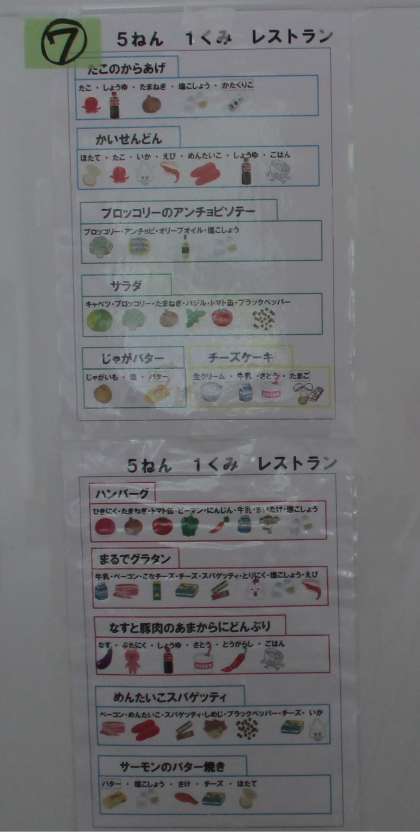 7
5ねん 1くみ レストラン
たこのからあげ
たこ・しょうゆ・たまねぎ・塩こしょう・かたくりこ
かいせんどん
ほたて・たこ・いか・えび・めんたいこ・しょうゆ・ごはん
ブロッコリーのアンチョビソテー
ブロッコリー・アンチョビ・オリーブオイル・塩こしょう
サラダ
キャベツ・ブロッコリー・たまねぎ・バジル・トマト缶・ブラックペッパー
じゃがバター
じゃがいも・塩・バター
チーズケーキ
生クリーム・牛乳・さとう・たまご
5ねん 1くみ レストラン
ハンバーグ
ひきにく・たまねぎ・トマト缶・ピーマン・にんじん・牛乳・まいたけ・塩こしょう
まるでグラタン
牛乳・ベーコン・こなチーズ・チーズ・スパゲッティ・とりにく・塩こしょう・えび
なすと豚肉のあまからにどんぶり
なす・ぶたにく・しょうゆ・さとう・とうがらし・ごはん
めんたいこスパゲッティ
ベーコン・めんたいこ・スパゲッティ・しめじ・ブラックペッパー・チーズ・いか
サーモンのバター焼き
バター・塩こしょう・さけ・チーズ・ほたて